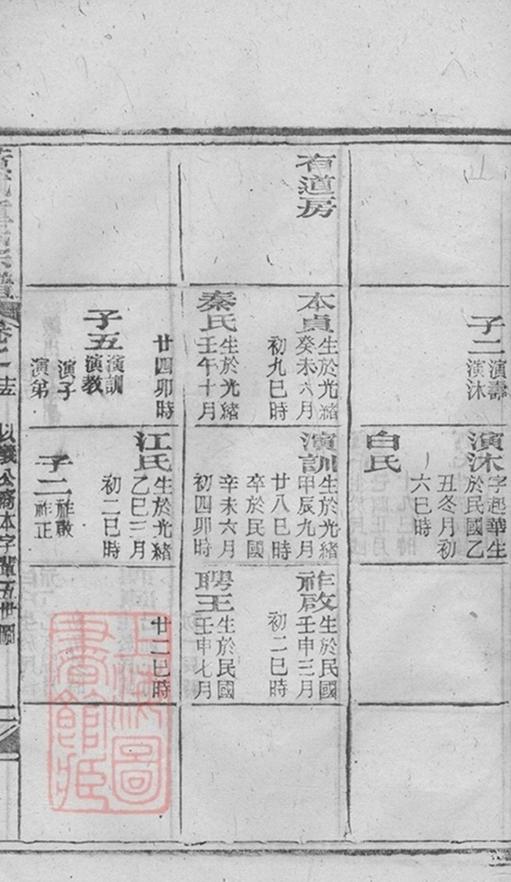 子二
演壽
演沐
演沐
字起華生
於民國乙
丑冬月初
六巳時
白氏
有道房
本貞
生於光緒
癸未六月
初九巳時
秦氏
生於光緒
壬午十月
廿四卯時
子五
演訓
演教
演子
演弟
演訓
生於光緒
甲辰九月
廿八巳時
卒於民國
辛未六月
初四卯時
江氏
生於光緒
乙巳三月
初二巳時
子二
祚啟
祚正
祚啟
生於民國
壬申三月
初二巳時
聘王
生於民國
壬申七月
廿二巳時
以義公裔本字輩五世圖